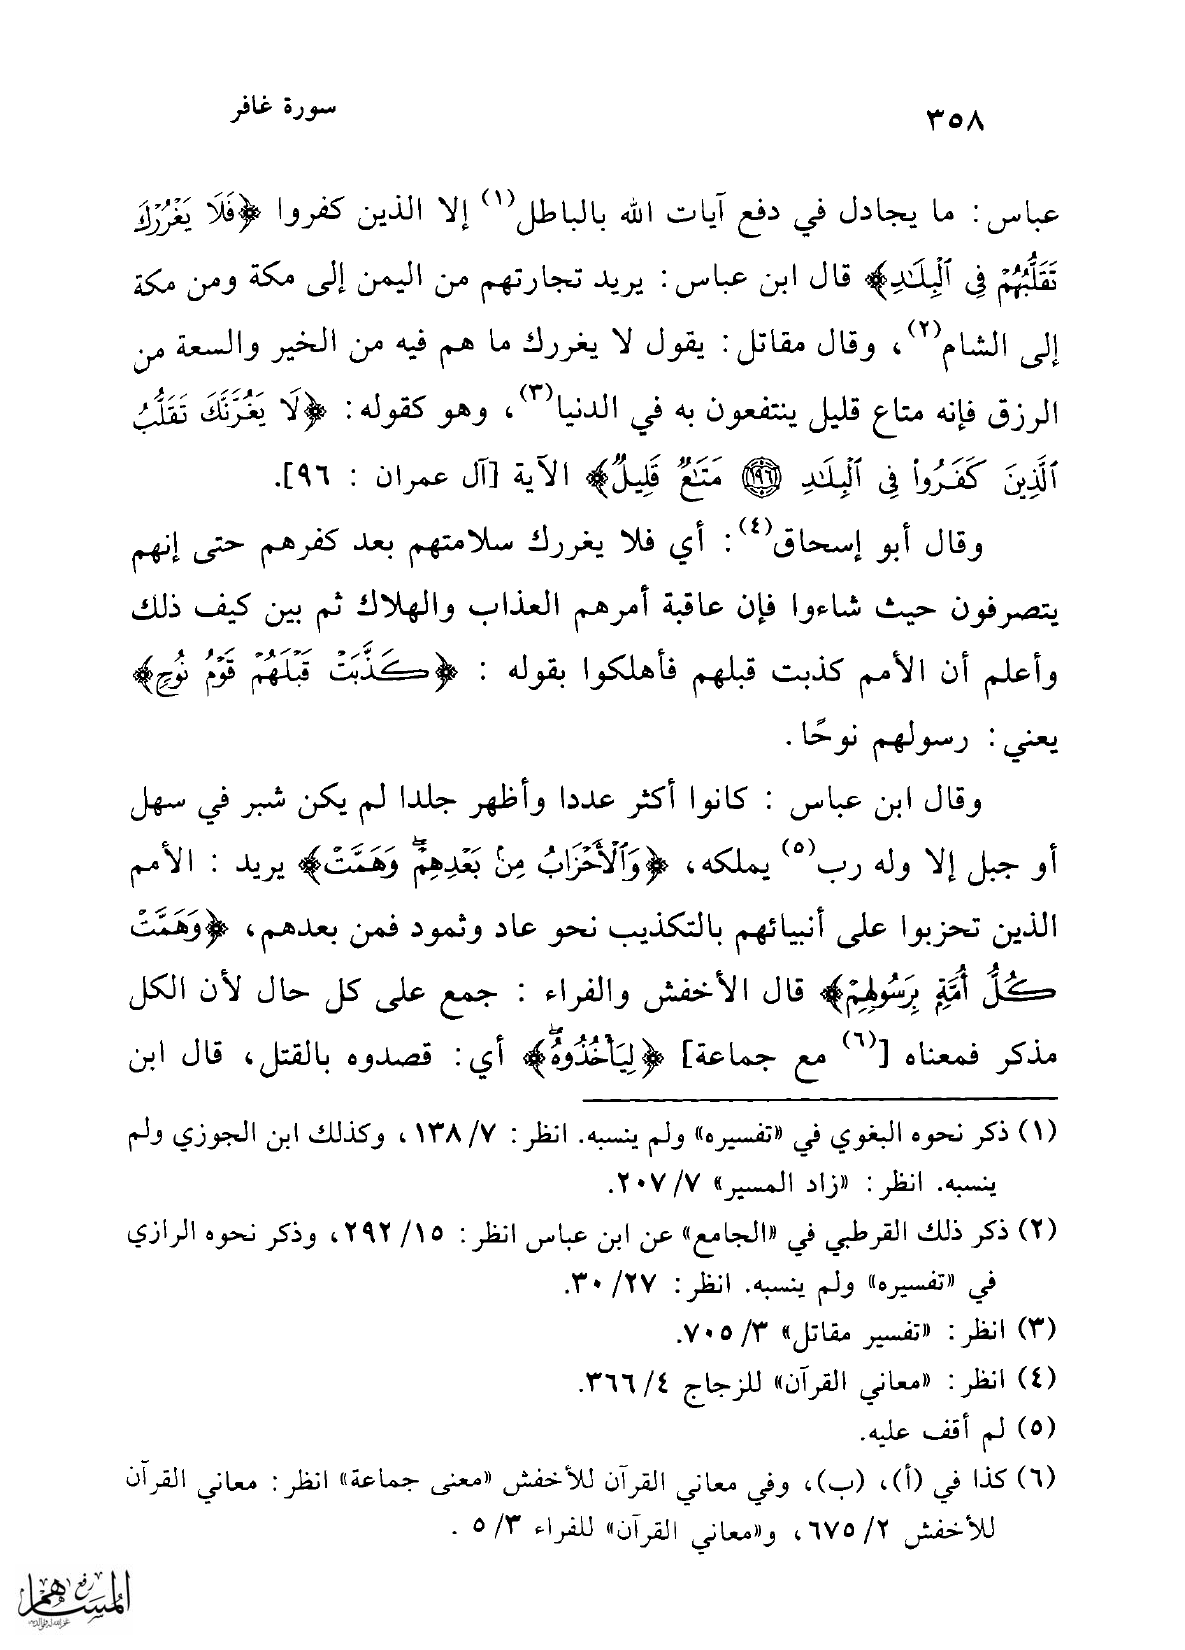 ٣٥٨
سورة غافر
عباس: ما يجادل في دفع آيات الله بالباطل(١) إلا الذين كفروا ﴿فَلَا يَغْرُرْكَ
تَقَلُّبُهُمْ فِي ٱلْبِلَـٰدِ﴾ قال ابن عباس: يريد تجارتهم من اليمن إلى مكة ومن مكة
إلى الشام(٢)، وقال مقاتل: يقول لا يغررك ما هم فيه من الخير والسعة من
الرزق فإنه متاع قليل ينتفعون به في الدنيا(٣)، وهو كقوله: ﴿لَا يَغُرَّنَّكَ تَقَلُّبُ
ٱلَّذِينَ كَفَرُوا۟ فِى ٱلْبِلَـٰدِ ١٩٦ مَتَـٰعٌ قَلِيلٌ﴾ الآية [آل عمران : ٩٦].
وقال أبو إسحاق(٤): أي فلا يغررك سلامتهم بعد كفرهم حتى إنهم
يتصرفون حيث شاءوا فإن عاقبة أمرهم العذاب والهلاك ثم بين كيف ذلك
وأعلم أن الأمم كذبت قبلهم فأهلكوا بقوله : ﴿كَذَّبَتْ قَبْلَهُمْ قَوْمُ نُوحٍ﴾
يعني: رسولهم نوحًا.
وقال ابن عباس : كانوا أكثر عددا وأظهر جلدا لم يكن شبر في سهل
أو جبل إلا وله رب(٥) يملكه، ﴿وَٱلْأَحْزَابُ مِنۢ بَعْدِهِمْۖ وَهَمَّتْ﴾ يريد : الأمم
الذين تحزبوا على أنبيائهم بالتكذيب نحو عاد وثمود فمن بعدهم، ﴿وَهَمَّتْ
كُلُّ أُمَّةٍۭ بِرَسُولِهِمْ﴾ قال الأخفش والفراء : جمع على كل حال لأن الكل
مذكر فمعناه [(٦) مع جماعة] ﴿لِيَأْخُذُوهُۖ﴾ أي: قصدوه بالقتل، قال ابن
(١) ذكر نحوه البغوي في «تفسيره» ولم ينسبه. انظر: ٧/ ١٣٨، وكذلك ابن الجوزي ولم
ينسبه. انظر: «زاد المسير» ٧/ ٢٠٧.
(٢) ذكر ذلك القرطبي في «الجامع» عن ابن عباس انظر: ١٥/ ٢٩٢، وذكر نحوه الرازي
في «تفسيره» ولم ينسبه. انظر: ٢٧/ ٣٠.
(٣) انظر: «تفسير مقاتل» ٣/ ٧٠٥.
(٤) انظر: «معاني القرآن» للزجاج ٤/ ٣٦٦.
(٥) لم أقف عليه.
(٦) كذا في (أ)، (ب)، وفي معاني القرآن للأخفش «معنى جماعة» انظر: معاني القرآن
للأخفش ٢/ ٦٧٥، و«معاني القرآن» للفراء ٣/ ٥ .